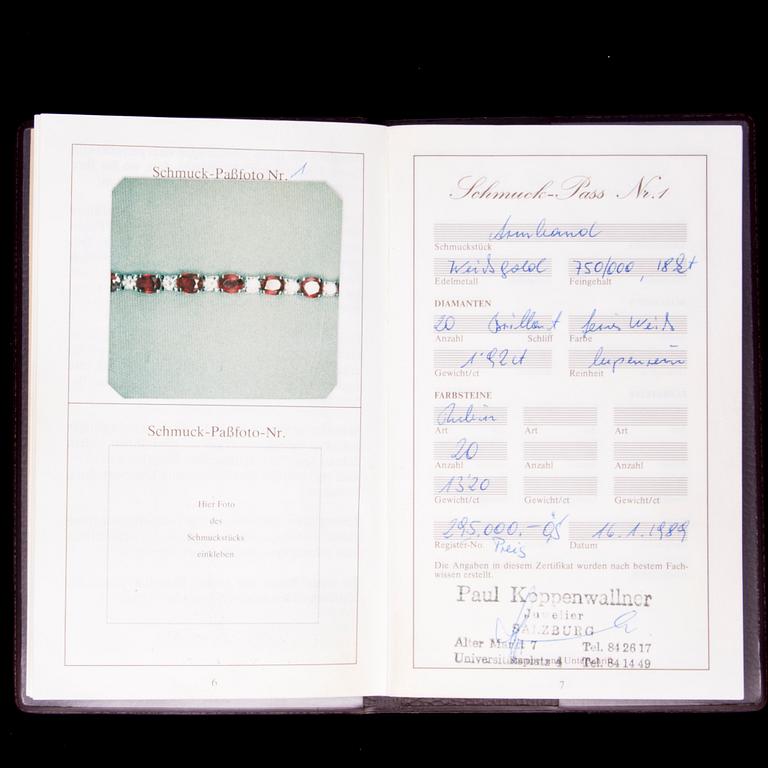 Schmuck-Paßfoto Nr. 1
Schmuck-Paßfoto-Nr.
Hier Foto
des
Schmuckstücks
einkleben
6
Schmuck-Pass Nr. 1
Armband
Schmuckstück
Weißgold 750/000, 18kt
Edelmetall Feingehalt
DIAMANTEN
20 Brillant feines Weiß
Anzahl Schliff Farbe
1'92ct lupenrein
Gewicht/ct Reinheit
FARBSTEINE
Rubin
Art Art Art
20
Anzahl Anzahl Anzahl
13'20
Gewicht/ct Gewicht/ct Gewicht/ct
295.000.- öS 16.1.1989
Register-No. Preis Datum
Die Angaben in diesem Zertifikat wurden nach bestem Fach-
wissen erstellt.
Paul Koppenwallner
Juwelier
SALZBURG
Alter Markt 7 Tel. 84 26 17
Universitätsplatz 4 Tel. 84 14 49
7